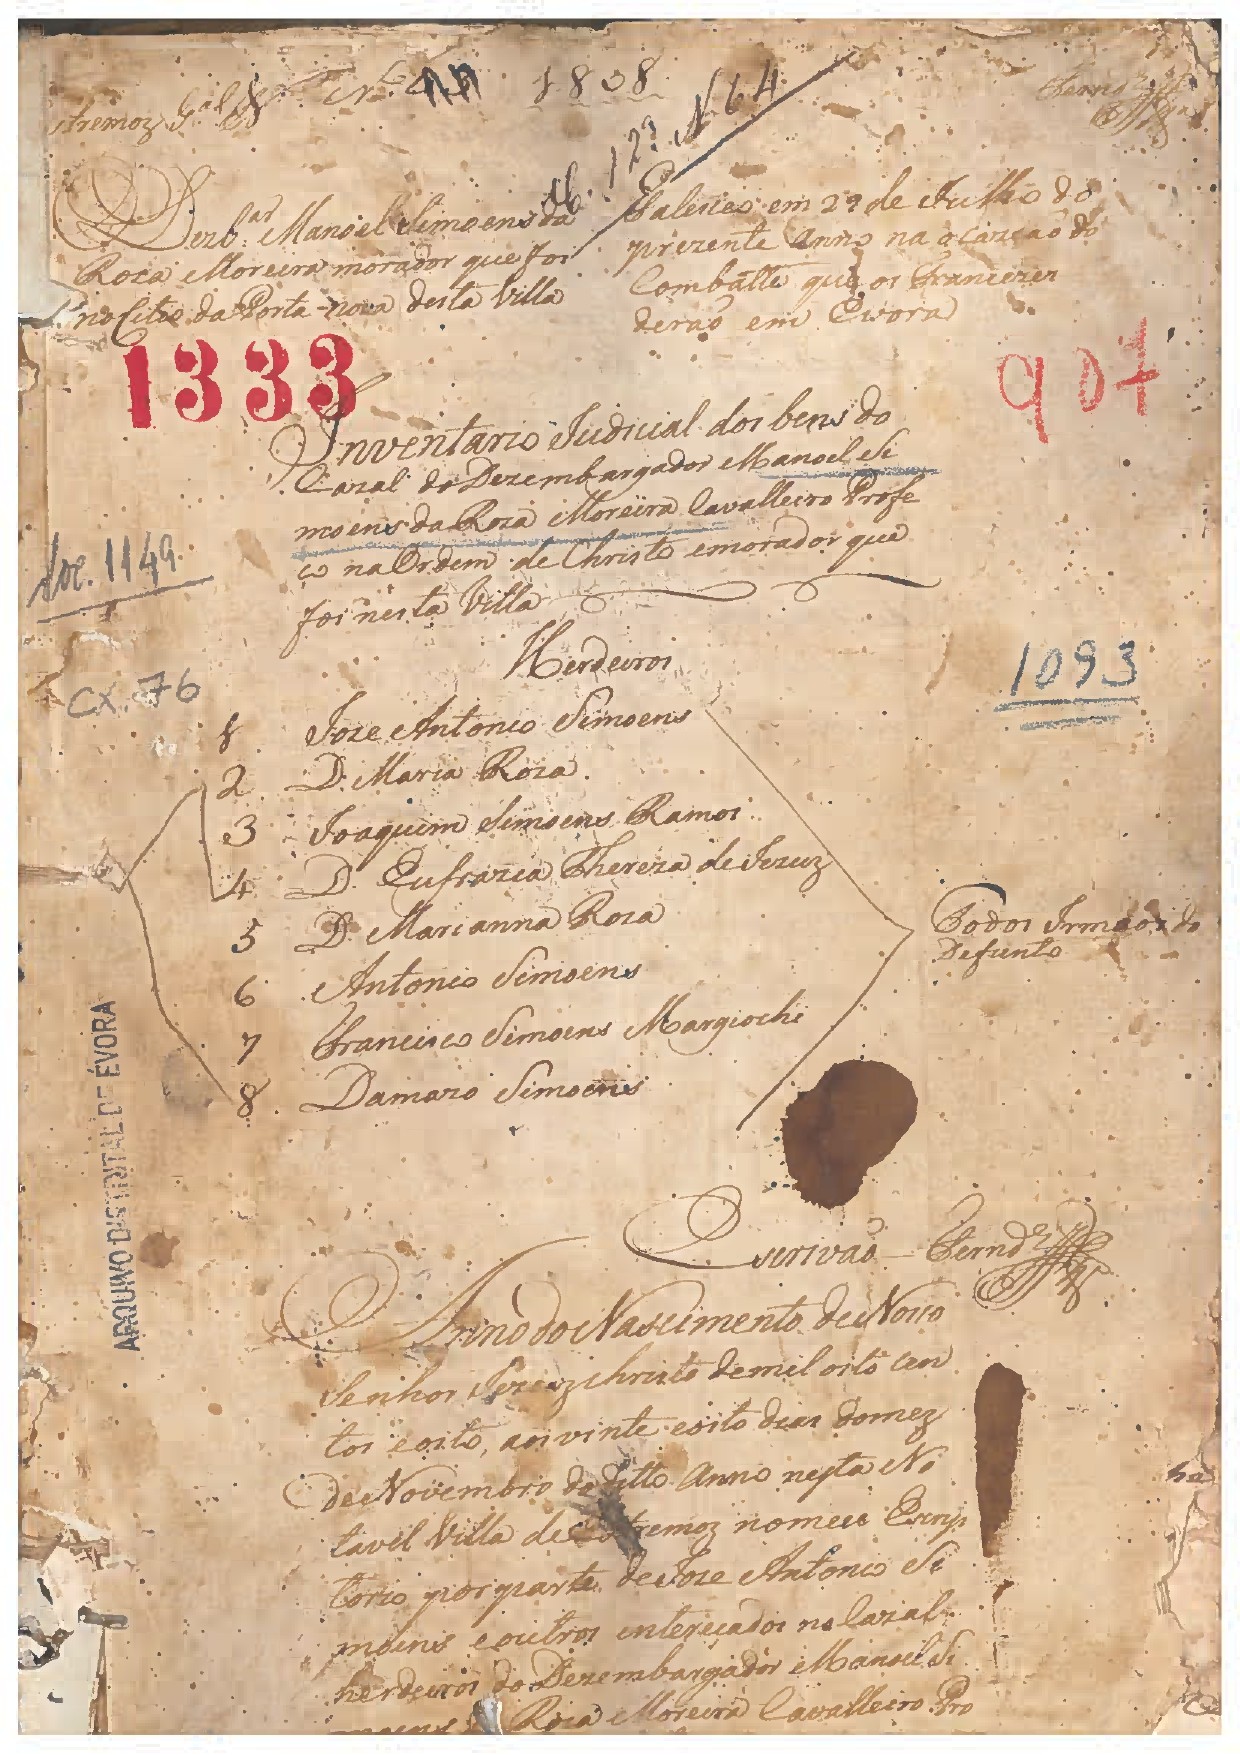 stremoz
1808
N 64
Dezb.ar Manoel Simoens da
Roza Moreira morador que foi
no Citio da Porta nova desta Villa
Faleceo em 29 de Julho do
prezente Anno na ocazião do
Combatte que os Francezes
derão em Evora
1333
907
Inventario Judicial dos bens do
Cazal do Dezembargador Manoel Si
moens da Roza Moreira Cavalleiro Profe
ço na Ordem de Christo e morador que
foi nesta Villa
1149
Cx. 76
1093
Herdeiros
1 Joze Antonio Simoens
2 D. Maria Roza.
3 Joaquim Simoens Ramos
4 D. Eufrazia Thereza de Jezuz
5 D. Marianna Roza
6 Antonio Simoens
7 Francisco Simoens Margiochi
8 Damazo Simoens
Todos Irmãos do
Defunto
ARQUIVO DISTRITAL DE ÉVORA
Escrivão Fernd.z
Anno do Nascimento de Nosso
Senhor Jezuz Christo de mil oito cen
tos e oito, aos vinte e oito dias do mez
de Novembro do ditto Anno nesta No
tavel Villa de Estremoz no meu Escrip
torio por parte de Joze Antonio Si
moens e outros interecados no Cazal
herdeiros do Dezembargador Manoel Si
moens Roza Moreira Cavalleiro Pro